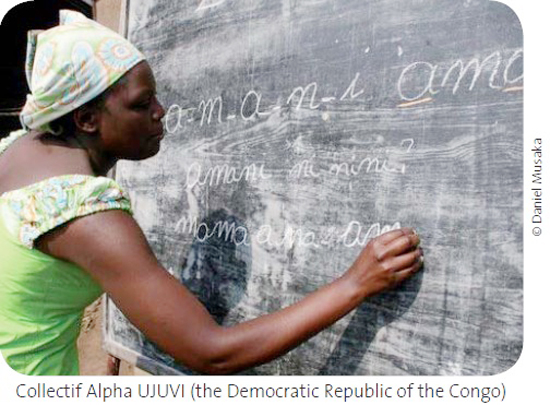 a-m-a-n-i ama
amani ni nini?
mama ana am
© Daniel Musaka
Collectif Alpha UJUVI (the Democratic Republic of the Congo)